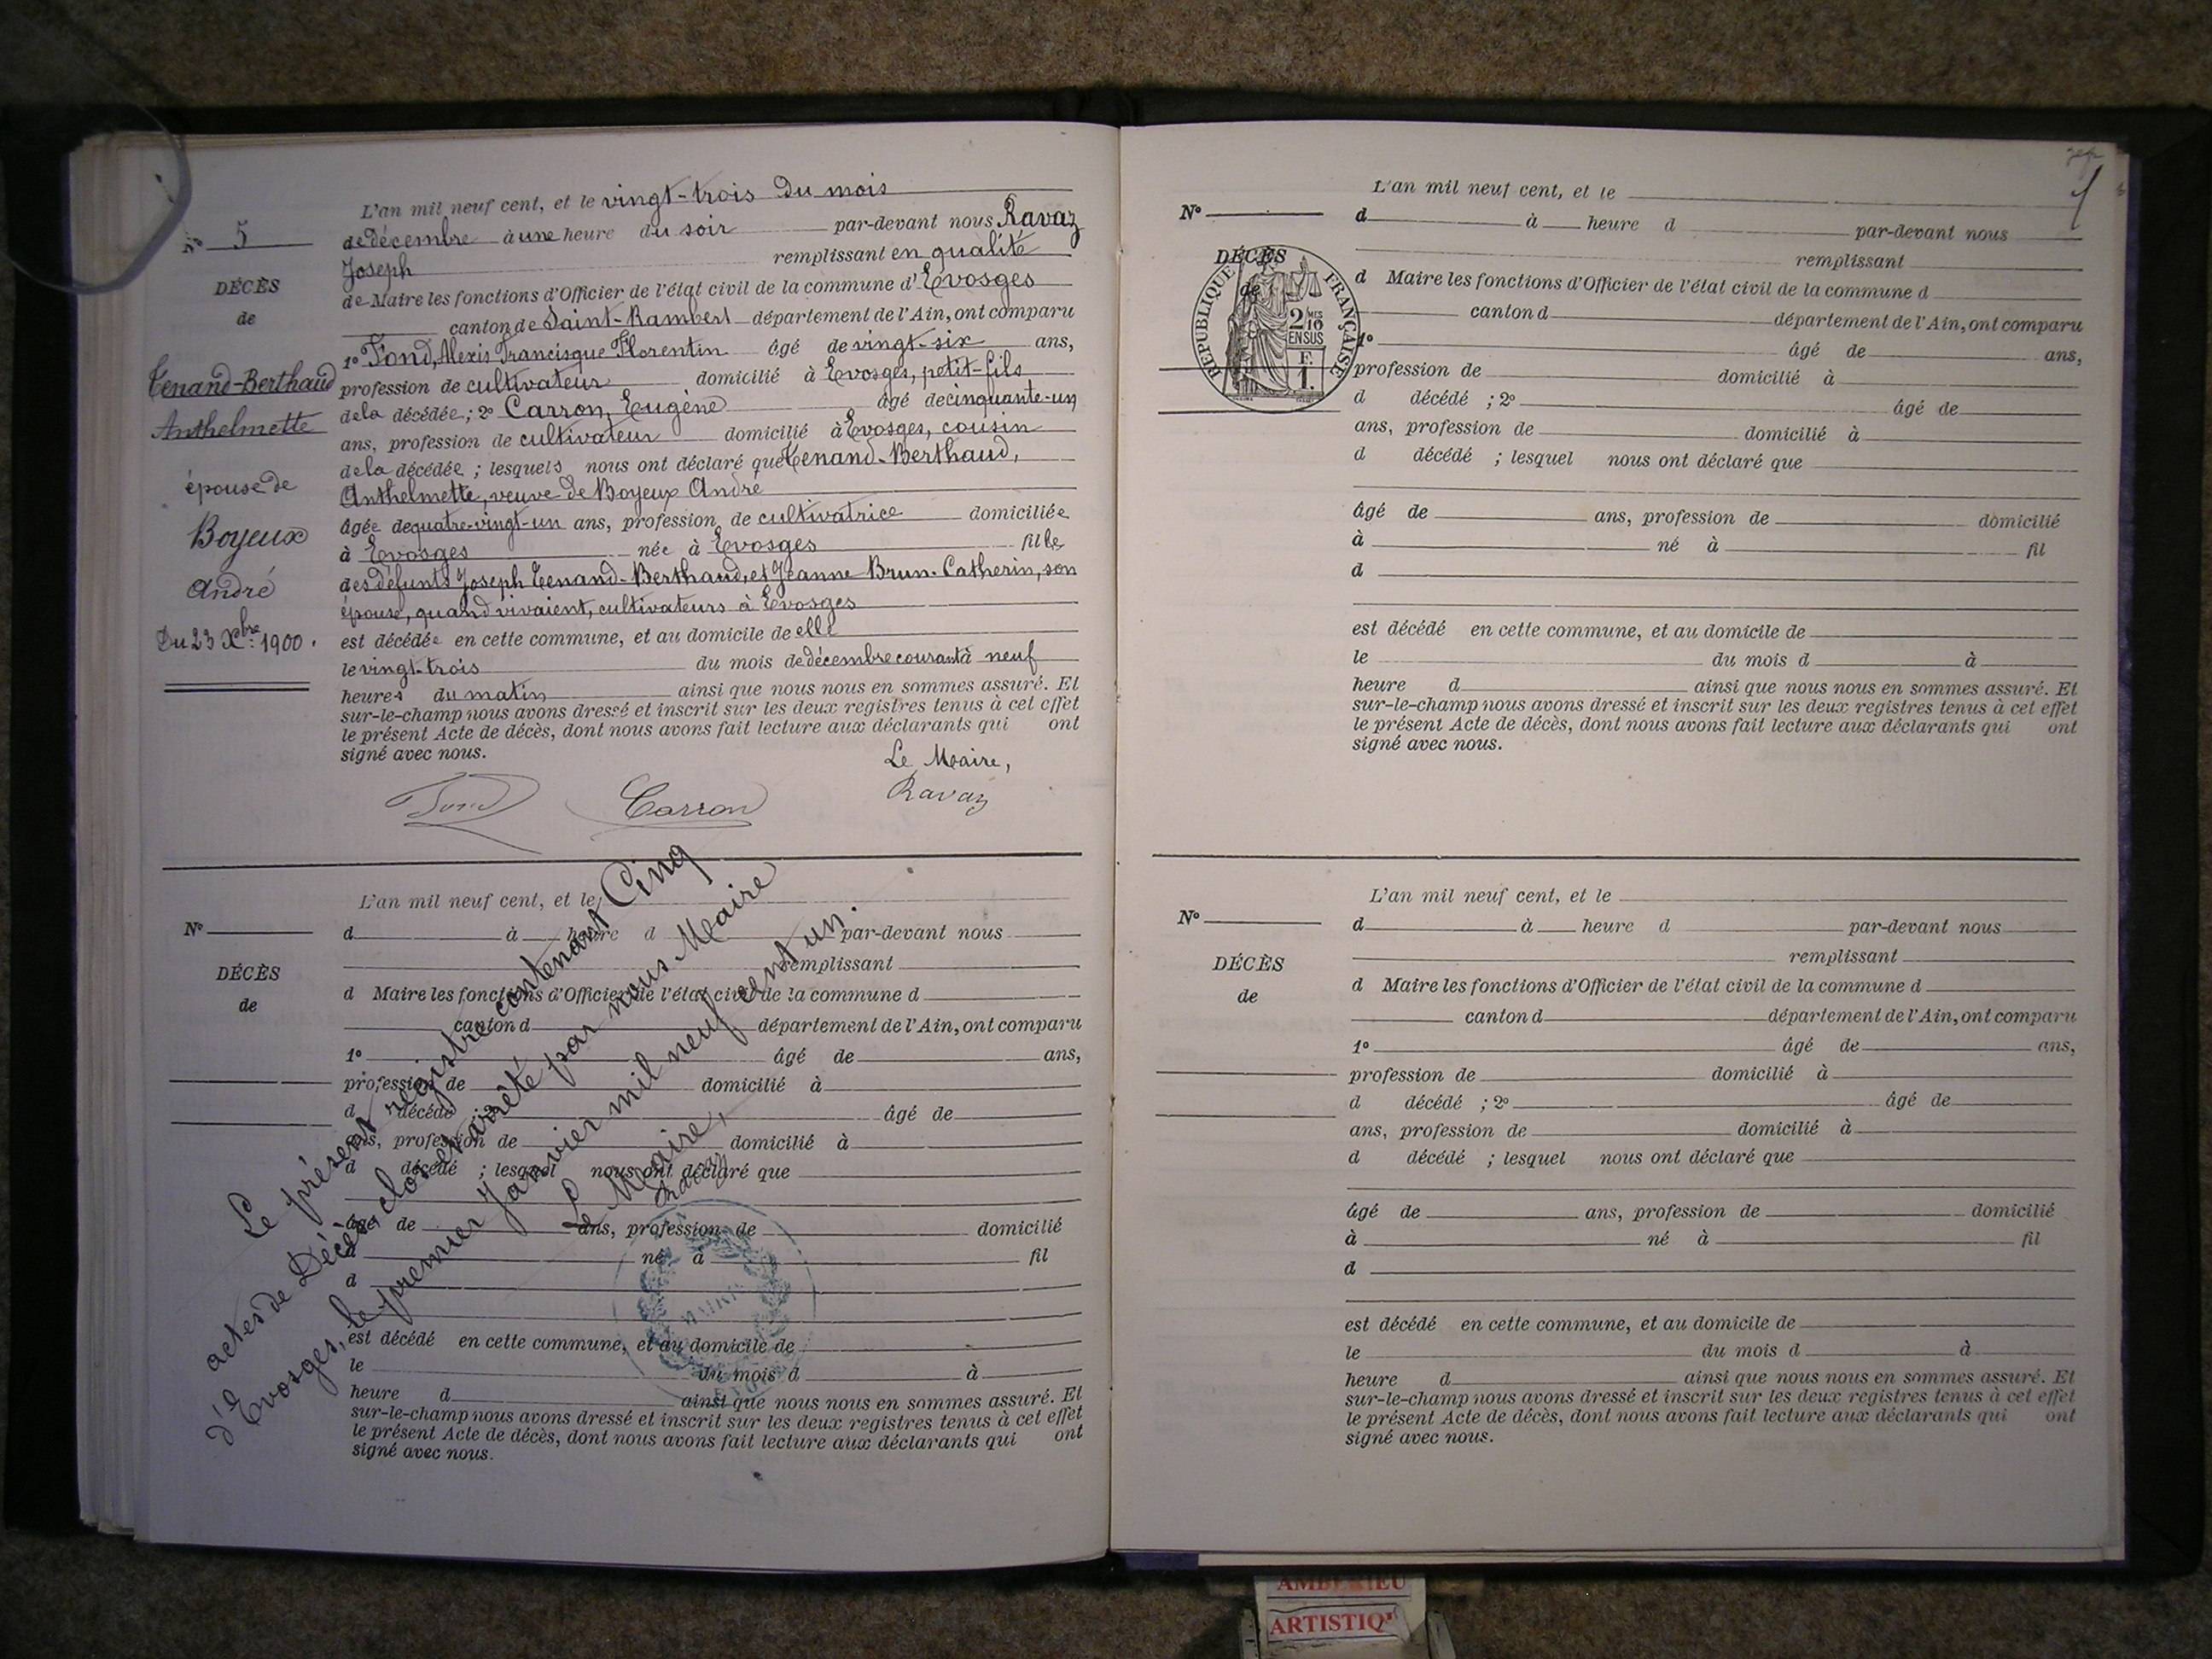 N° 5
DÉCÈS
de
Tenand-Berthaud
Anthelmette
épouse de
Boyeux
André
Du 23 Xbre 1900.
L'an mil neuf cent, et le vingt-trois du mois
de décembre à une heure du soir par-devant nous Ravaz
Joseph remplissant en qualité
de Maire les fonctions d'Officier de l'état civil de la commune d'Evosges
canton de Saint-Rambert département de l'Ain, ont comparu
1° Fond, Alexis Francisque Florentin âgé de vingt-six ans,
profession de cultivateur domicilié à Evosges, petit-fils
de la décédée ; 2° Carron, Eugène âgé de cinquante-un
ans, profession de cultivateur domicilié à Evosges, cousin
de la décédée ; lesquels nous ont déclaré que Tenand-Berthaud,
Anthelmette, veuve de Boyeux André
âgée de quatre-vingt-un ans, profession de cultivatrice domiciliée
à Evosges née à Evosges fille
des défunts Joseph Tenand-Berthaud, et Jeanne Brun-Catherin, son
épouse, quand vivaient, cultivateurs à Evosges
est décédée en cette commune, et au domicile de elle
le vingt-trois du mois de décembre courant à neuf
heures du matin ainsi que nous nous en sommes assuré. Et
sur-le-champ nous avons dressé et inscrit sur les deux registres tenus à cet effet
le présent Acte de décès, dont nous avons fait lecture aux déclarants qui ont
signé avec nous.
Le Maire,
Fond Carron Ravaz
N°
DÉCÈS
de
L'an mil neuf cent, et le
d à heure d par-devant nous
remplissant
d Maire les fonctions d'Officier de l'état civil de la commune d
canton d département de l'Ain, ont comparu
1° âgé de ans,
profession de domicilié à
d décédé ; 2° âgé de
ans, profession de domicilié à
d décédé ; lesquel nous ont déclaré que
âgé de ans, profession de domicilié
à né à fil
d
est décédé en cette commune, et au domicile de
le du mois d à
heure d ainsi que nous nous en sommes assuré. Et
sur-le-champ nous avons dressé et inscrit sur les deux registres tenus à cet effet
le présent Acte de décès, dont nous avons fait lecture aux déclarants qui ont
signé avec nous.
Le présent registre contenant Cinq
actes de Décès, clos et arrêté par nous Maire
d'Evosges, le premier Janvier mil neuf cent un.
Le Maire,
Ravaz
MAIRIE
N°
DÉCÈS
de
RÉPUBLIQUE FRANÇAISE
2/10MES
EN SUS
F.
1.
L'an mil neuf cent, et le
d à heure d par-devant nous
remplissant
d Maire les fonctions d'Officier de l'état civil de la commune d
canton d département de l'Ain, ont comparu
1° âgé de ans,
profession de domicilié à
d décédé ; 2° âgé de
ans, profession de domicilié à
d décédé ; lesquel nous ont déclaré que
âgé de ans, profession de domicilié
à né à fil
d
est décédé en cette commune, et au domicile de
le du mois d à
heure d ainsi que nous nous en sommes assuré. Et
sur-le-champ nous avons dressé et inscrit sur les deux registres tenus à cet effet
le présent Acte de décès, dont nous avons fait lecture aux déclarants qui ont
signé avec nous.
N°
DÉCÈS
de
L'an mil neuf cent, et le
d à heure d par-devant nous
remplissant
d Maire les fonctions d'Officier de l'état civil de la commune d
canton d département de l'Ain, ont comparu
1° âgé de ans,
profession de domicilié à
d décédé ; 2° âgé de
ans, profession de domicilié à
d décédé ; lesquel nous ont déclaré que
âgé de ans, profession de domicilié
à né à fil
d
est décédé en cette commune, et au domicile de
le du mois d à
heure d ainsi que nous nous en sommes assuré. Et
sur-le-champ nous avons dressé et inscrit sur les deux registres tenus à cet effet
le présent Acte de décès, dont nous avons fait lecture aux déclarants qui ont
signé avec nous.
AMBERIEU
ARTISTIQ